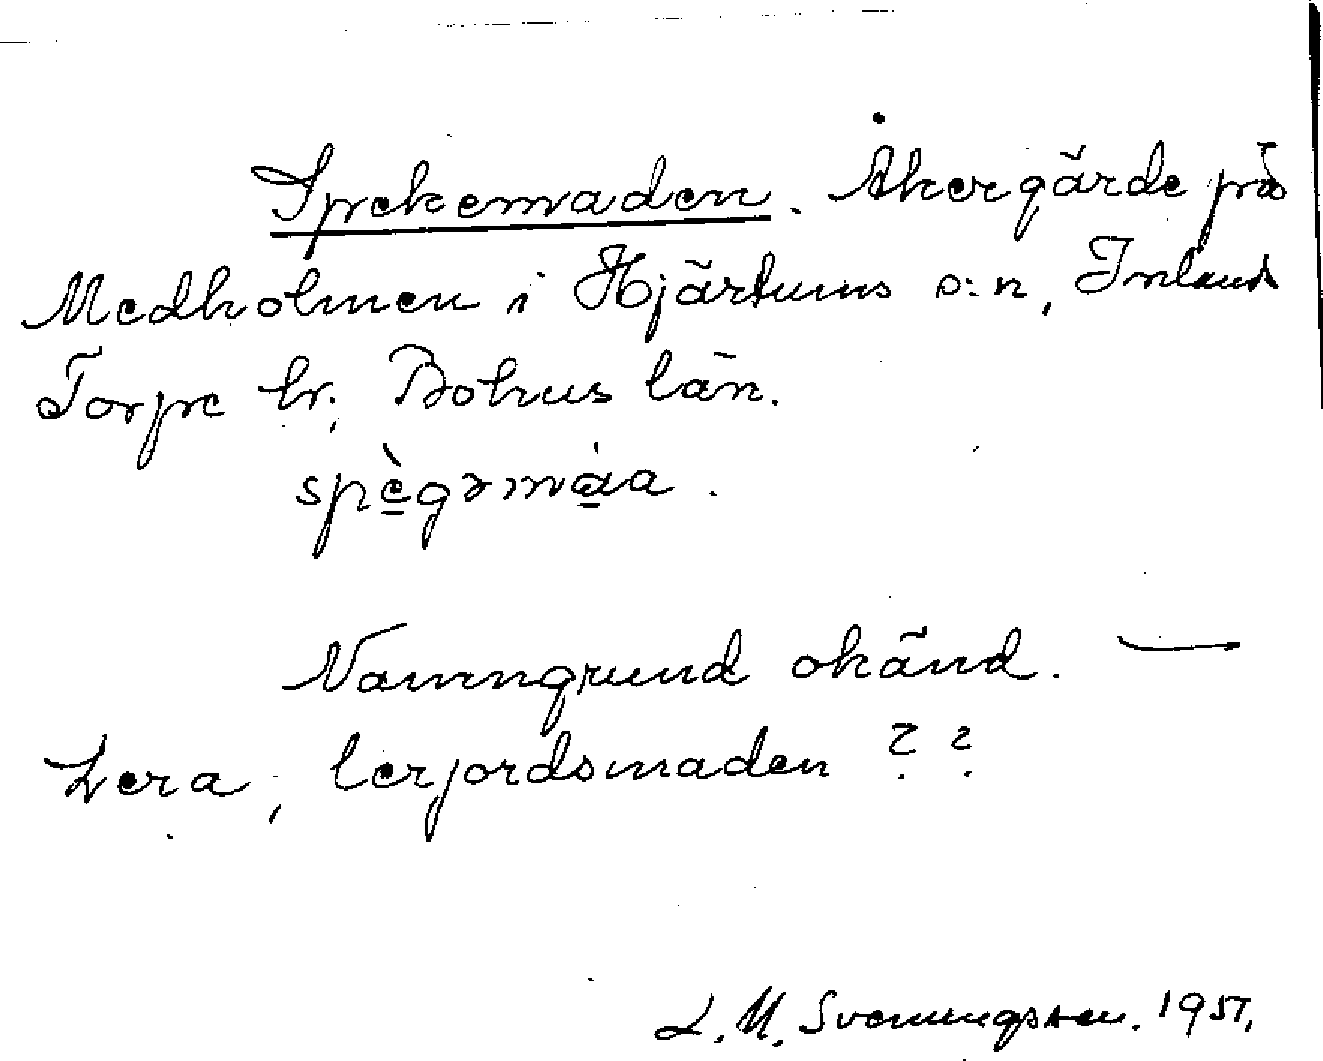 Spekemaden. Åkergärde på
Medholmen i Hjärtums s:n, Inlands
Torpe hr, Bohus län.
spègəmáa.
Namngrund okänd. —
Lera, lerjordsmaden ? ?
L. M. Svenungsson. 1951.